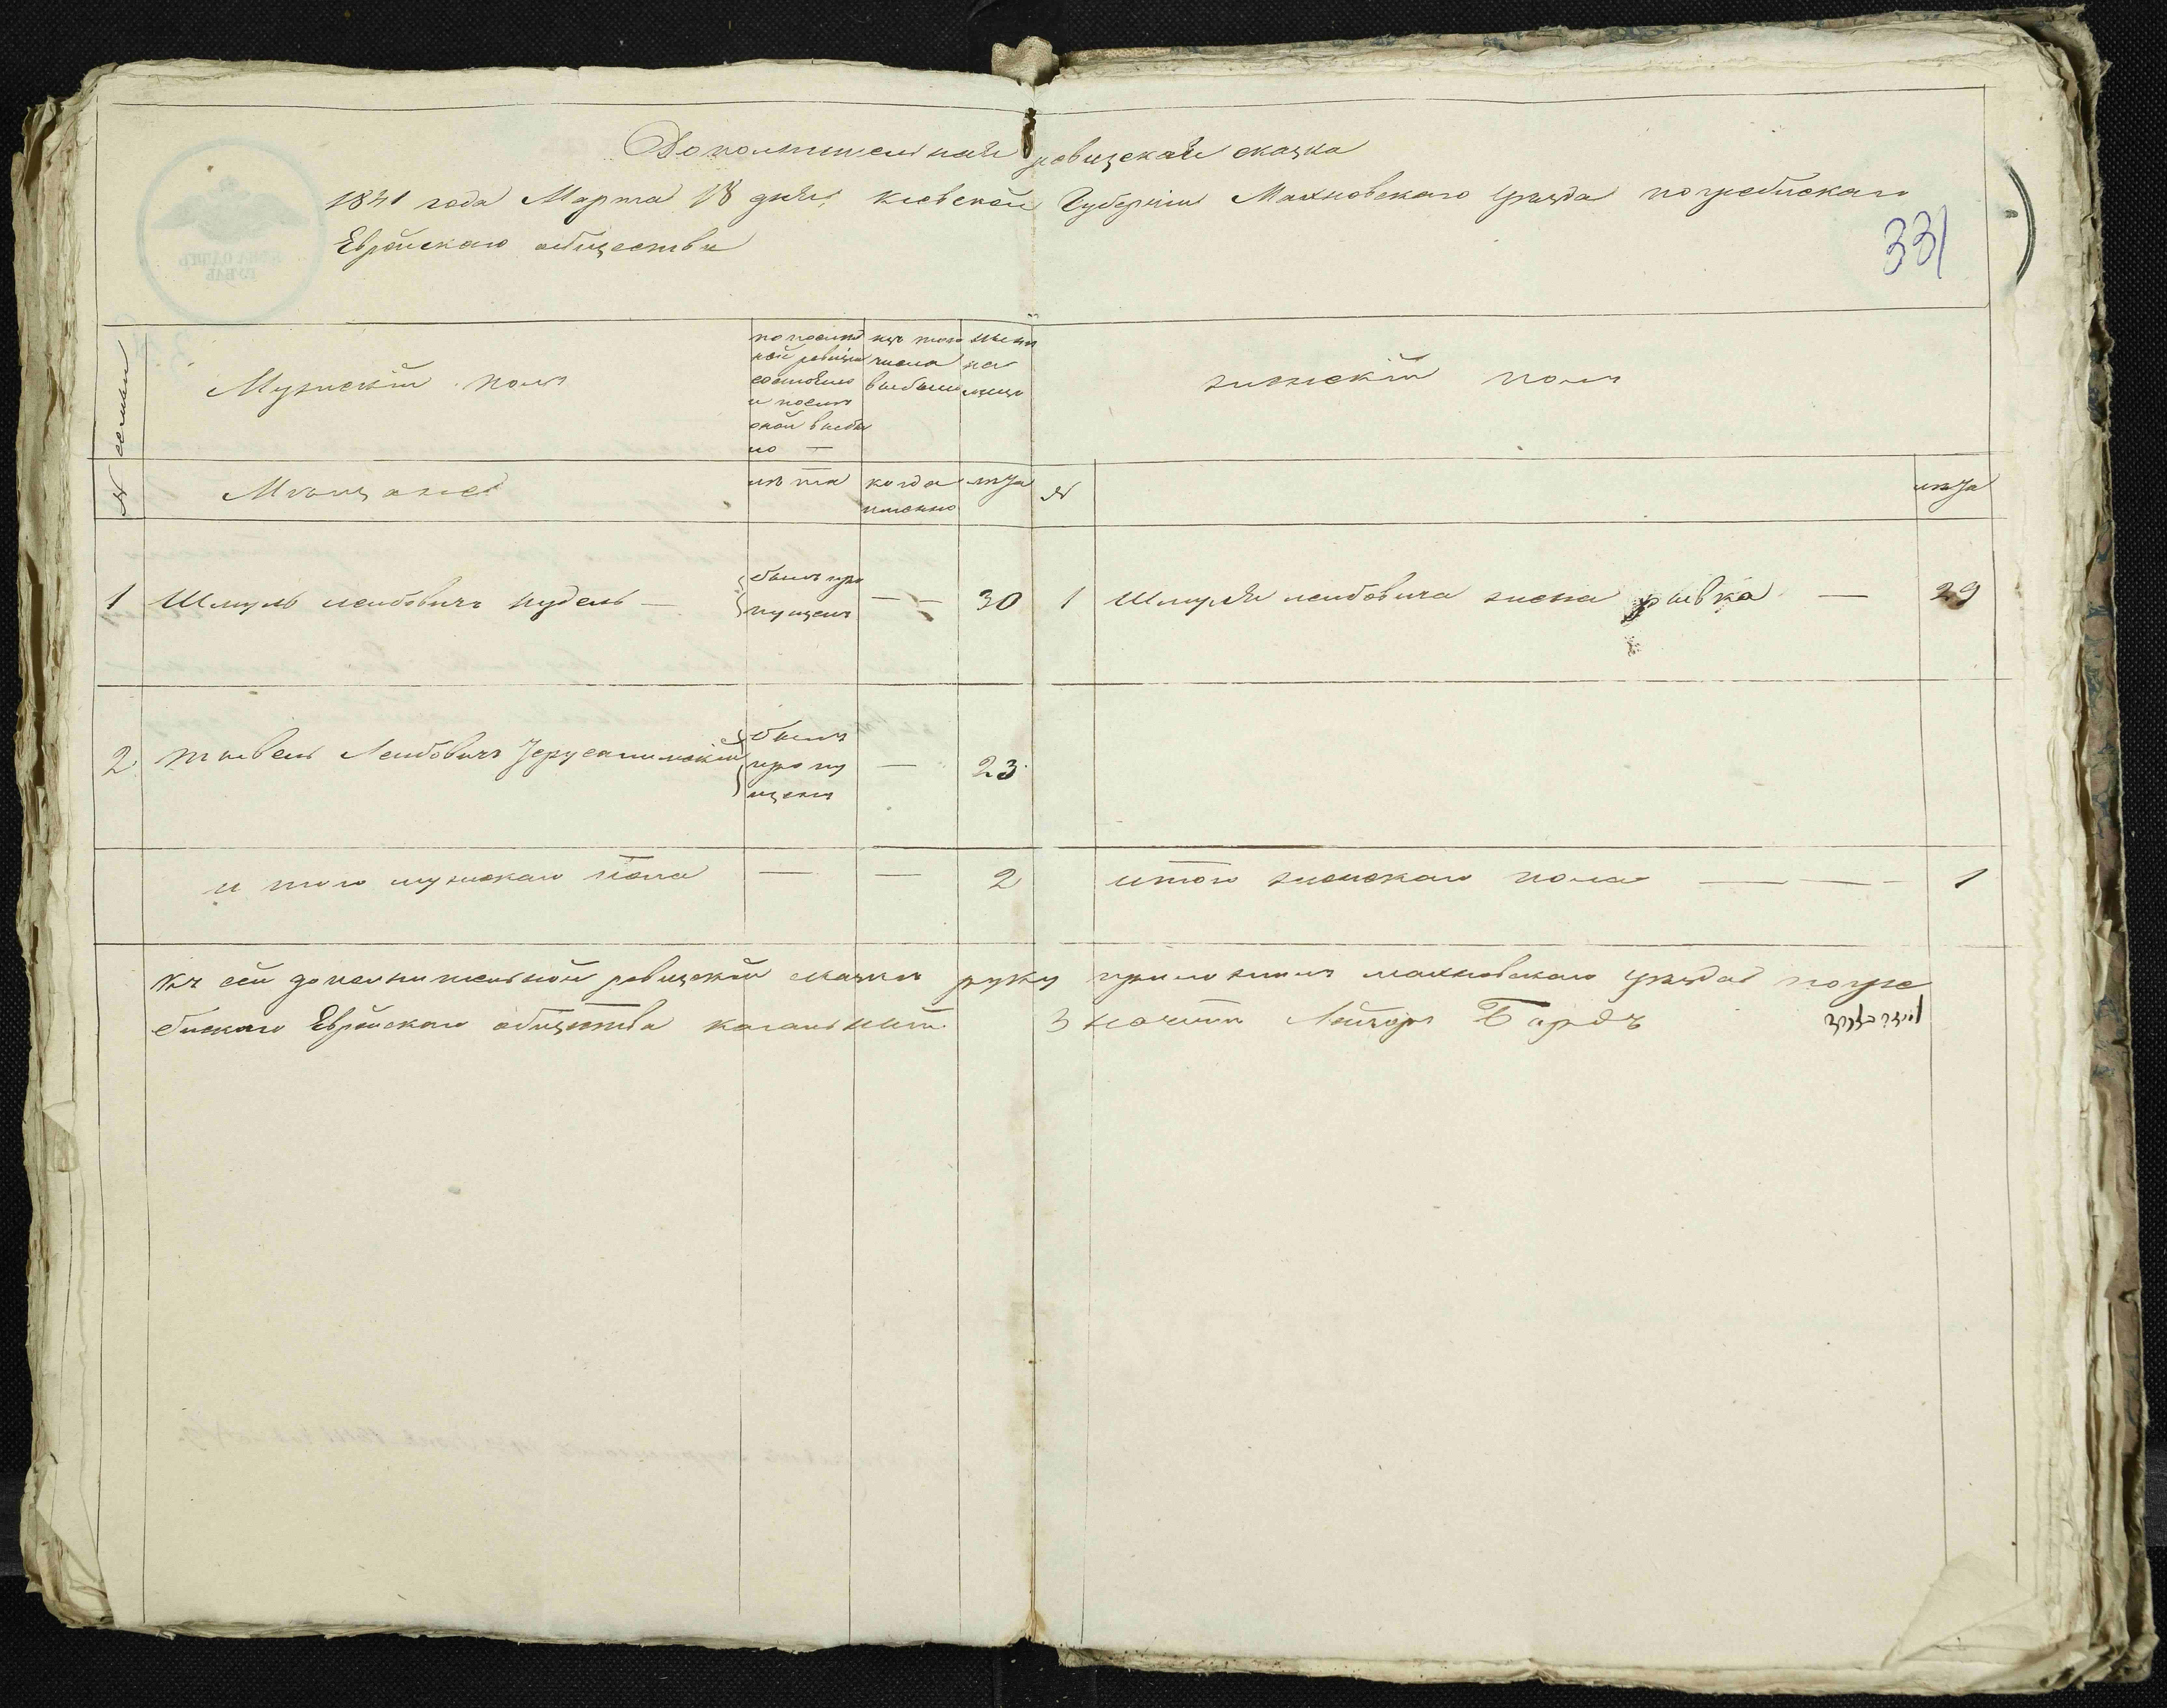 Дополнительная ревизская сказка
1841 года Марта 18 дня, Киевской Губерніи Махновскаго уезда погребискаго
Еврейскаго общества
331
№ семьи
Мужескій полъ
по послед
ней ревизіи
состояло
и после
оной выбы
ло —
изъ того
числа
выбыло
ныне
на
лицо
женскій полъ
Мещане
лета
когда
именно
лета
№
лета
1 Шмуль лейбовичъ нудель — былъ про
пущенъ — — 30 1 Шмуля лейбовича жена рывка — 29
2 Лейбовичъ Іерусалимскій былъ
пропу
щенъ — 23
и того мужскаго пола — — 2 итого женскаго пола — — 1
Къ сей дополнительной ревизской сказки руку приложилъ махновскаго уезда погре
бискаго Еврейскаго общества кагальный Лейзоръ